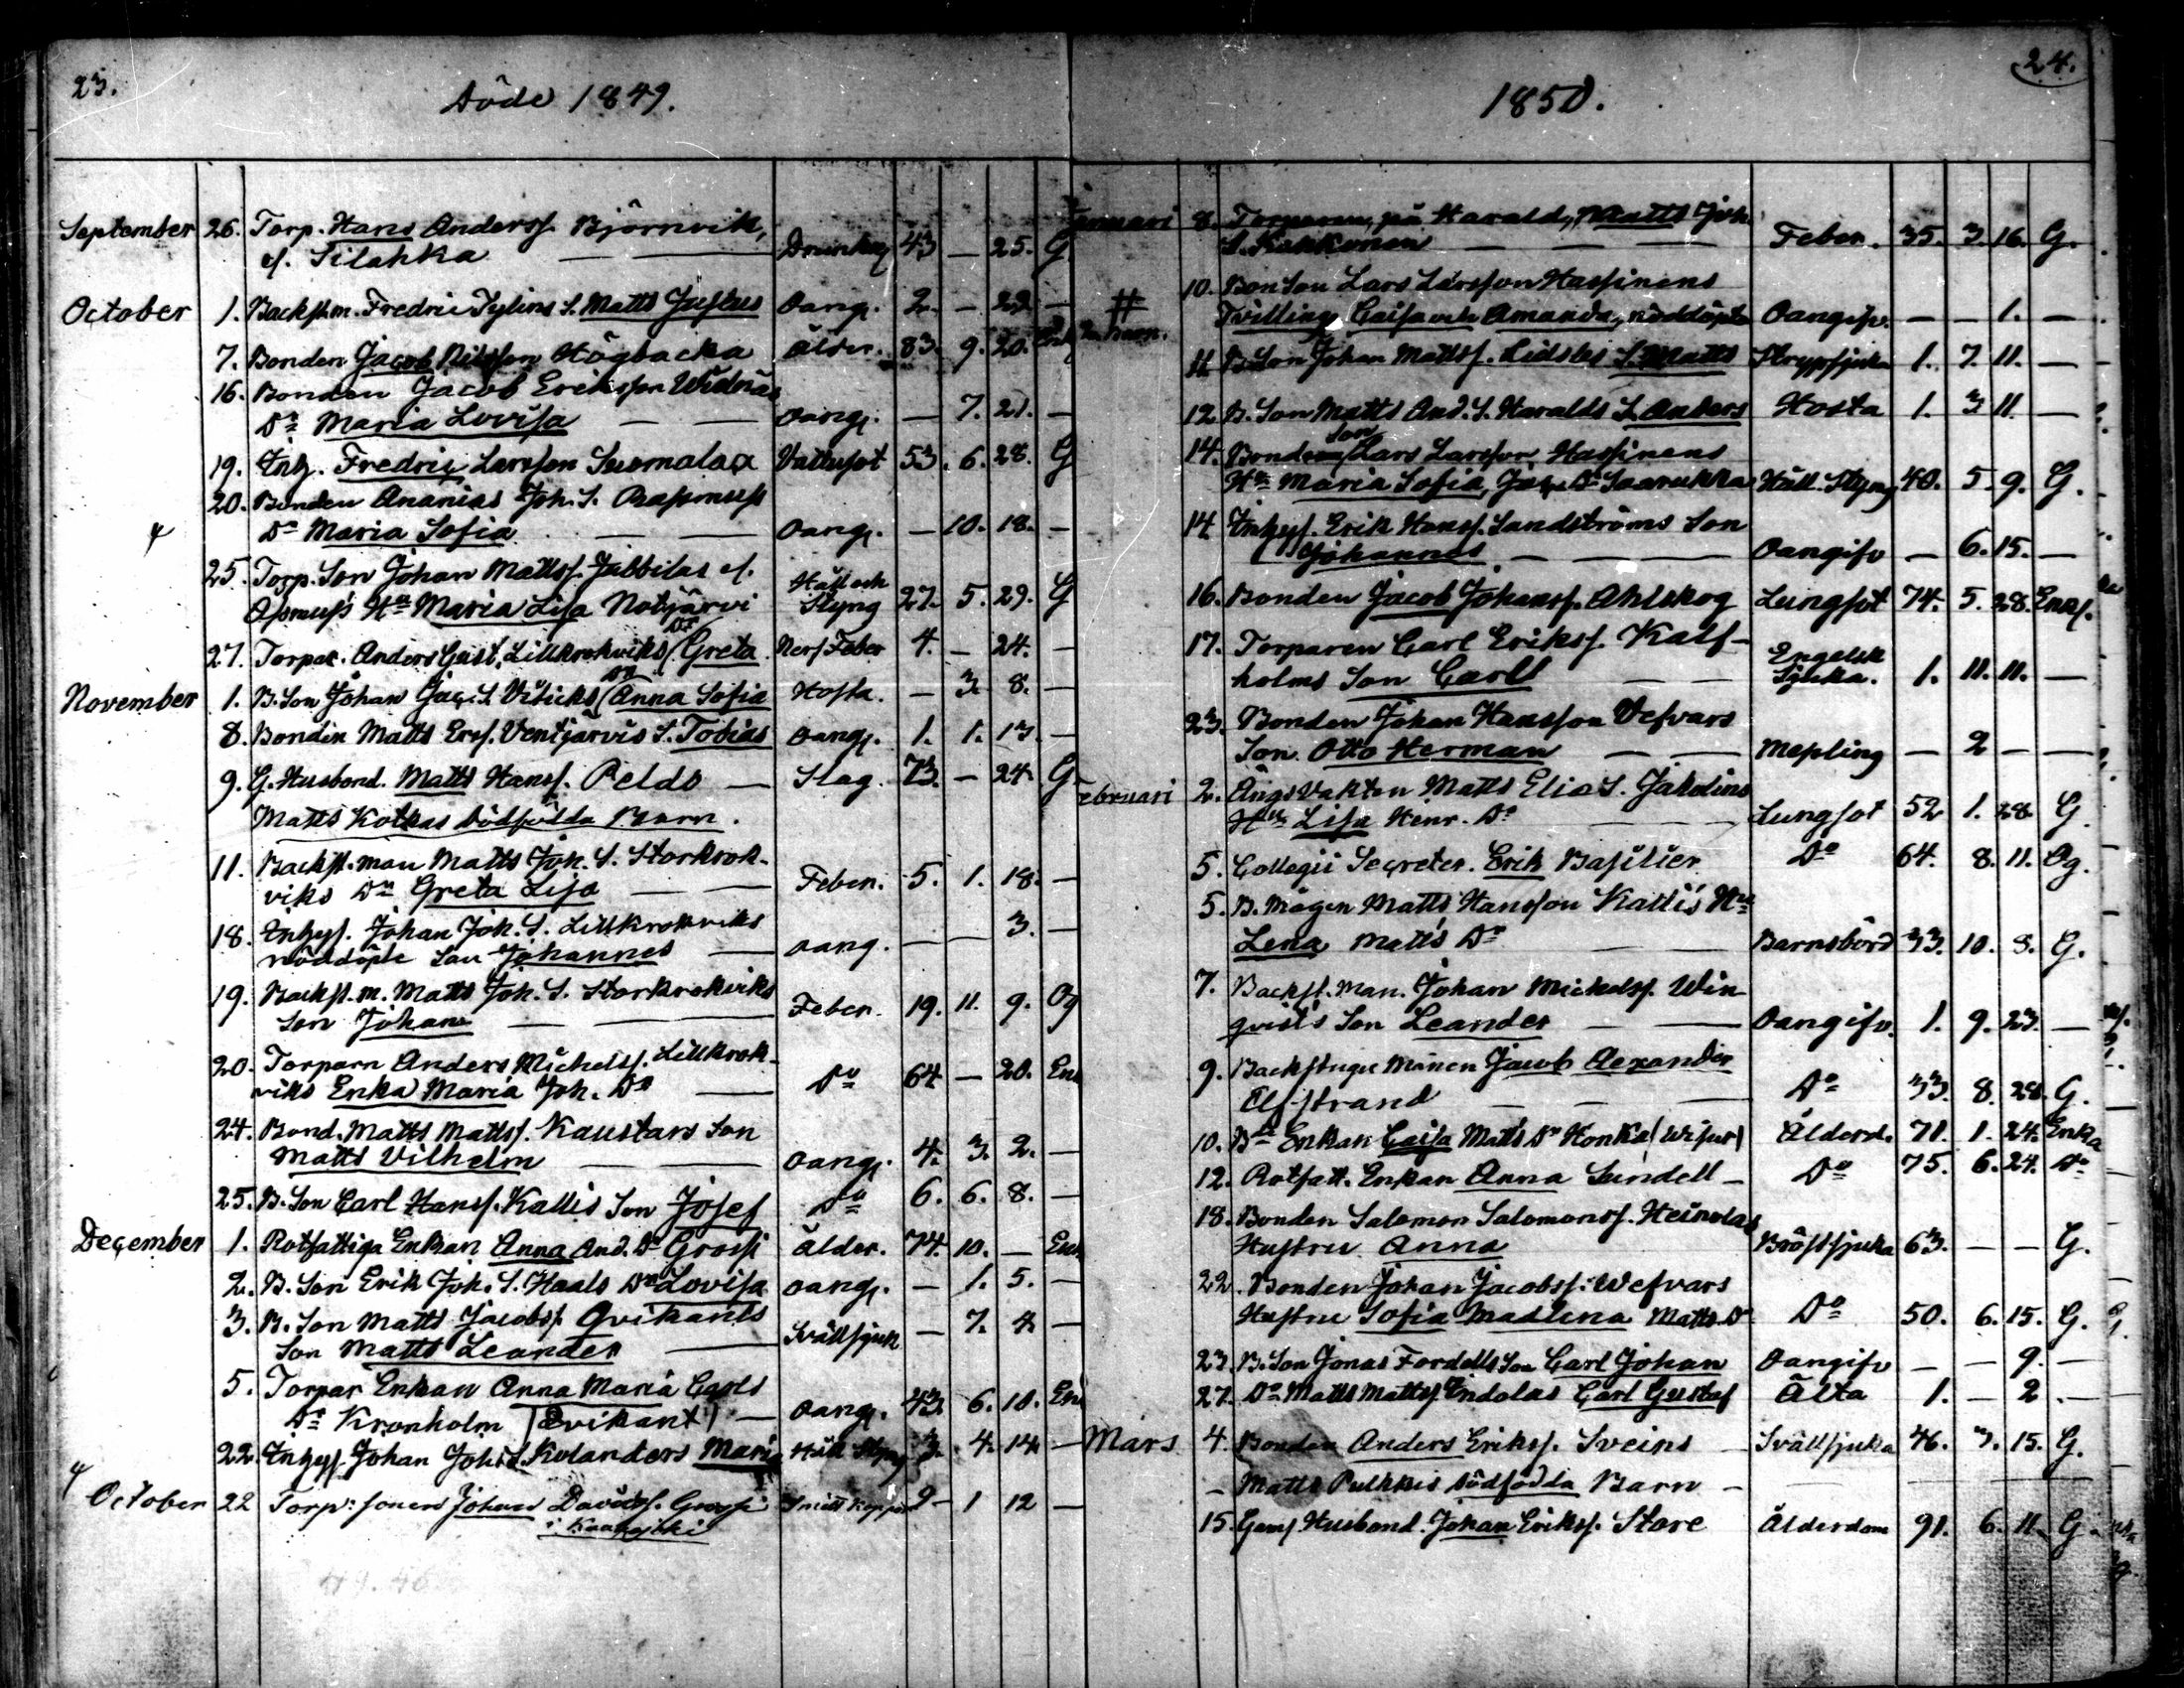 23.
Döde 1849.
September 26. Torp. Hans Anderss. Björnvik,
el. Tilahka — — Drunkng 43 — 25. G
October 1. Backst.m. Fredric Tylins S. Matts Justus Oang. 2. — 22 —
7. Bonden Jacob Nilsson Högbacka Ålder. 83. 9. 20. Enk
16. Bonden Jacob Eriksson Widnäs
Dr Maria Lovisa — — Oang. — 7. 21. —
19. Inh. Fredric Larsson Suomalax Vattusot 53. 6. 28. G
20. Bonden Ananias Joh. S. Rasmuss
Dr Maria Sofia — — Oang. — 10. 18. —
25. Torp. Son Johan Mattss. Jabbilas el.
Åsmuss Hu Maria Lisa Notjärvi Håll och Styng 27. 5. 29. G
27. Torpar. Anders Gust. Lillkrokviks Dr Greta Nerf Feber 4. — 24. —
November 1. B. Son Johan Jac. S. Visicks Dr Anna Sofia Hosta. — 3. 8. —
8. Bondin Matts Ers. Ventjärvis S. Tobias Oang. 1. 1. 13. —
9. G. Husbond. Matts Hanss. Peldo — Slag. 73. — 24. G
Matts Kotkas dödfödda Barn.
11. Backst. man Matts Joh. S. Storkrok-
viks Dr Greta Lisa — — Feber. 5. 1. 18. —
18. Inhys. Johan Joh. S. Lillkrokviks
nöddöpte Son Johannes — Oang. — — 3. —
19. Backst. m. Matts Joh. S. Storkrokviks
Son Johan — — Feber. 19. 11. 9. Og
20. Torparn Anders Michelss. Lillkrok-
viks Enka Maria Joh. Dr — Do 64 — 20. Enk
24. Bond. Matts Mattss. Kaustars Son
Matts Vilhelm — — Oang. 4. 3. 2. —
25. B. Son Carl Hanss. Kallis Son Josef Do 6. 6. 8. —
December 1. Rotfattiga Enkan Anna And. Dr Grossi Ålder. 74. 10. — Enk
2. B. Son Erik Joh. S. Haals Dr Lovisa Oang. — 1. 5. —
3. B. Son Matts Jacobss. Qvikants
Son Matts Leander — Svällsjuk — 7. 4. —
5. Torpar Enkan Anna Maria Carls
Dr Kronholm (Qvikant) — Oang. 43. 6. 10. Enk
22. Inhys. Johan Joh. S. Kolanders Maria Håll Styng 3. 4. 14. —
October 22 Torp: sonen Johan Davidss. Grossi Smitt koppor 2 - 1 12 —
24.
1850.
Januari 8. Torparen på Harald, Matts Joh.
S. Kakkonen — — — Feber. 35. 3. 16. G.
10. Bon Son Lars Larsson Hassinens
Tvilling Caisa och Amanda, nöddöpta Oangifv. — — 1. —
11. B. Son Johan Mattss. Lidsles S. Matts Strypsjuka 1. 7. 11. —
12. B. Son Matts And. S. Haralds S. Anders Hosta 1. 3 11. —
14. Bonden Son Lars Larsson Hassinens
Hu Maria Sofia, Jac. Dr Saarukka Håll. Styng 40. 5. 9. G.
14 Inhys. Erik Hanss. Sandströms Son
Johannes — — Oangifv — 6. 15. —
16. Bonden Jacob Johanss. Ahlskog Lungsot 74. 5. 28. Enkl.
17. Torparen Carl Erikss. Kalf-
holms Son Carl — — Engelsk Sjuka. 1. 11. 11. —
23. Bonden Johan Hansson Vefvars
Son Otto Herman — — Messling — 2 — —
Februari 2. Ängsvakten Matts Elia S. Jakolins
Hu Lisa Henr. Dr — Lungsot 52 1. 28. G.
5. Collegii Secreter. Erik Basilier Do 64. 8. 11. Og.
5. B. Mågen Matts Hansson Kallis Hu
Lena Matts Dr — Barnsbörd 33. 10. 8. G.
7. Backst. Man. Johan Mickelss. Win-
qvists Son Leander — — Oangifv. 1. 9. 23. —
9. Backstugu Mannen Jacob Alexander
Elfstrand — — — Do 33. 8. 28. G.
10. B. Enkan Caisa Matts Dr Honka Ålderd. 71. 1. 24. Enka
12. Rotfatt. Enkan Anna Sundell — Do 75. 6. 24. Do
18. Bonden Salomon Salomonss. Heinolas
Hustru Anna Bröstsjuka 63. — — G.
22. Bonden Johan Jacobss. Wefvars
Hustru Sofia Madlena Matts Dr Do 50. 6. 15. G.
23. B. Son Jonas Fordells Son Carl Johan Oangifv — — 9. —
27. Do Matts Mattss. Indolas Carl Gustaf Älta 1. — 2. —
Mars 4. Bonden Anders Erikss. Sveins — Svällsjuka 46. 3. 15. G.
— Matts Pulkkis dödfödda Barn —
15. Gam. Husbond. Johan Erikss. Store Ålderdom 91. 6. 11. G.